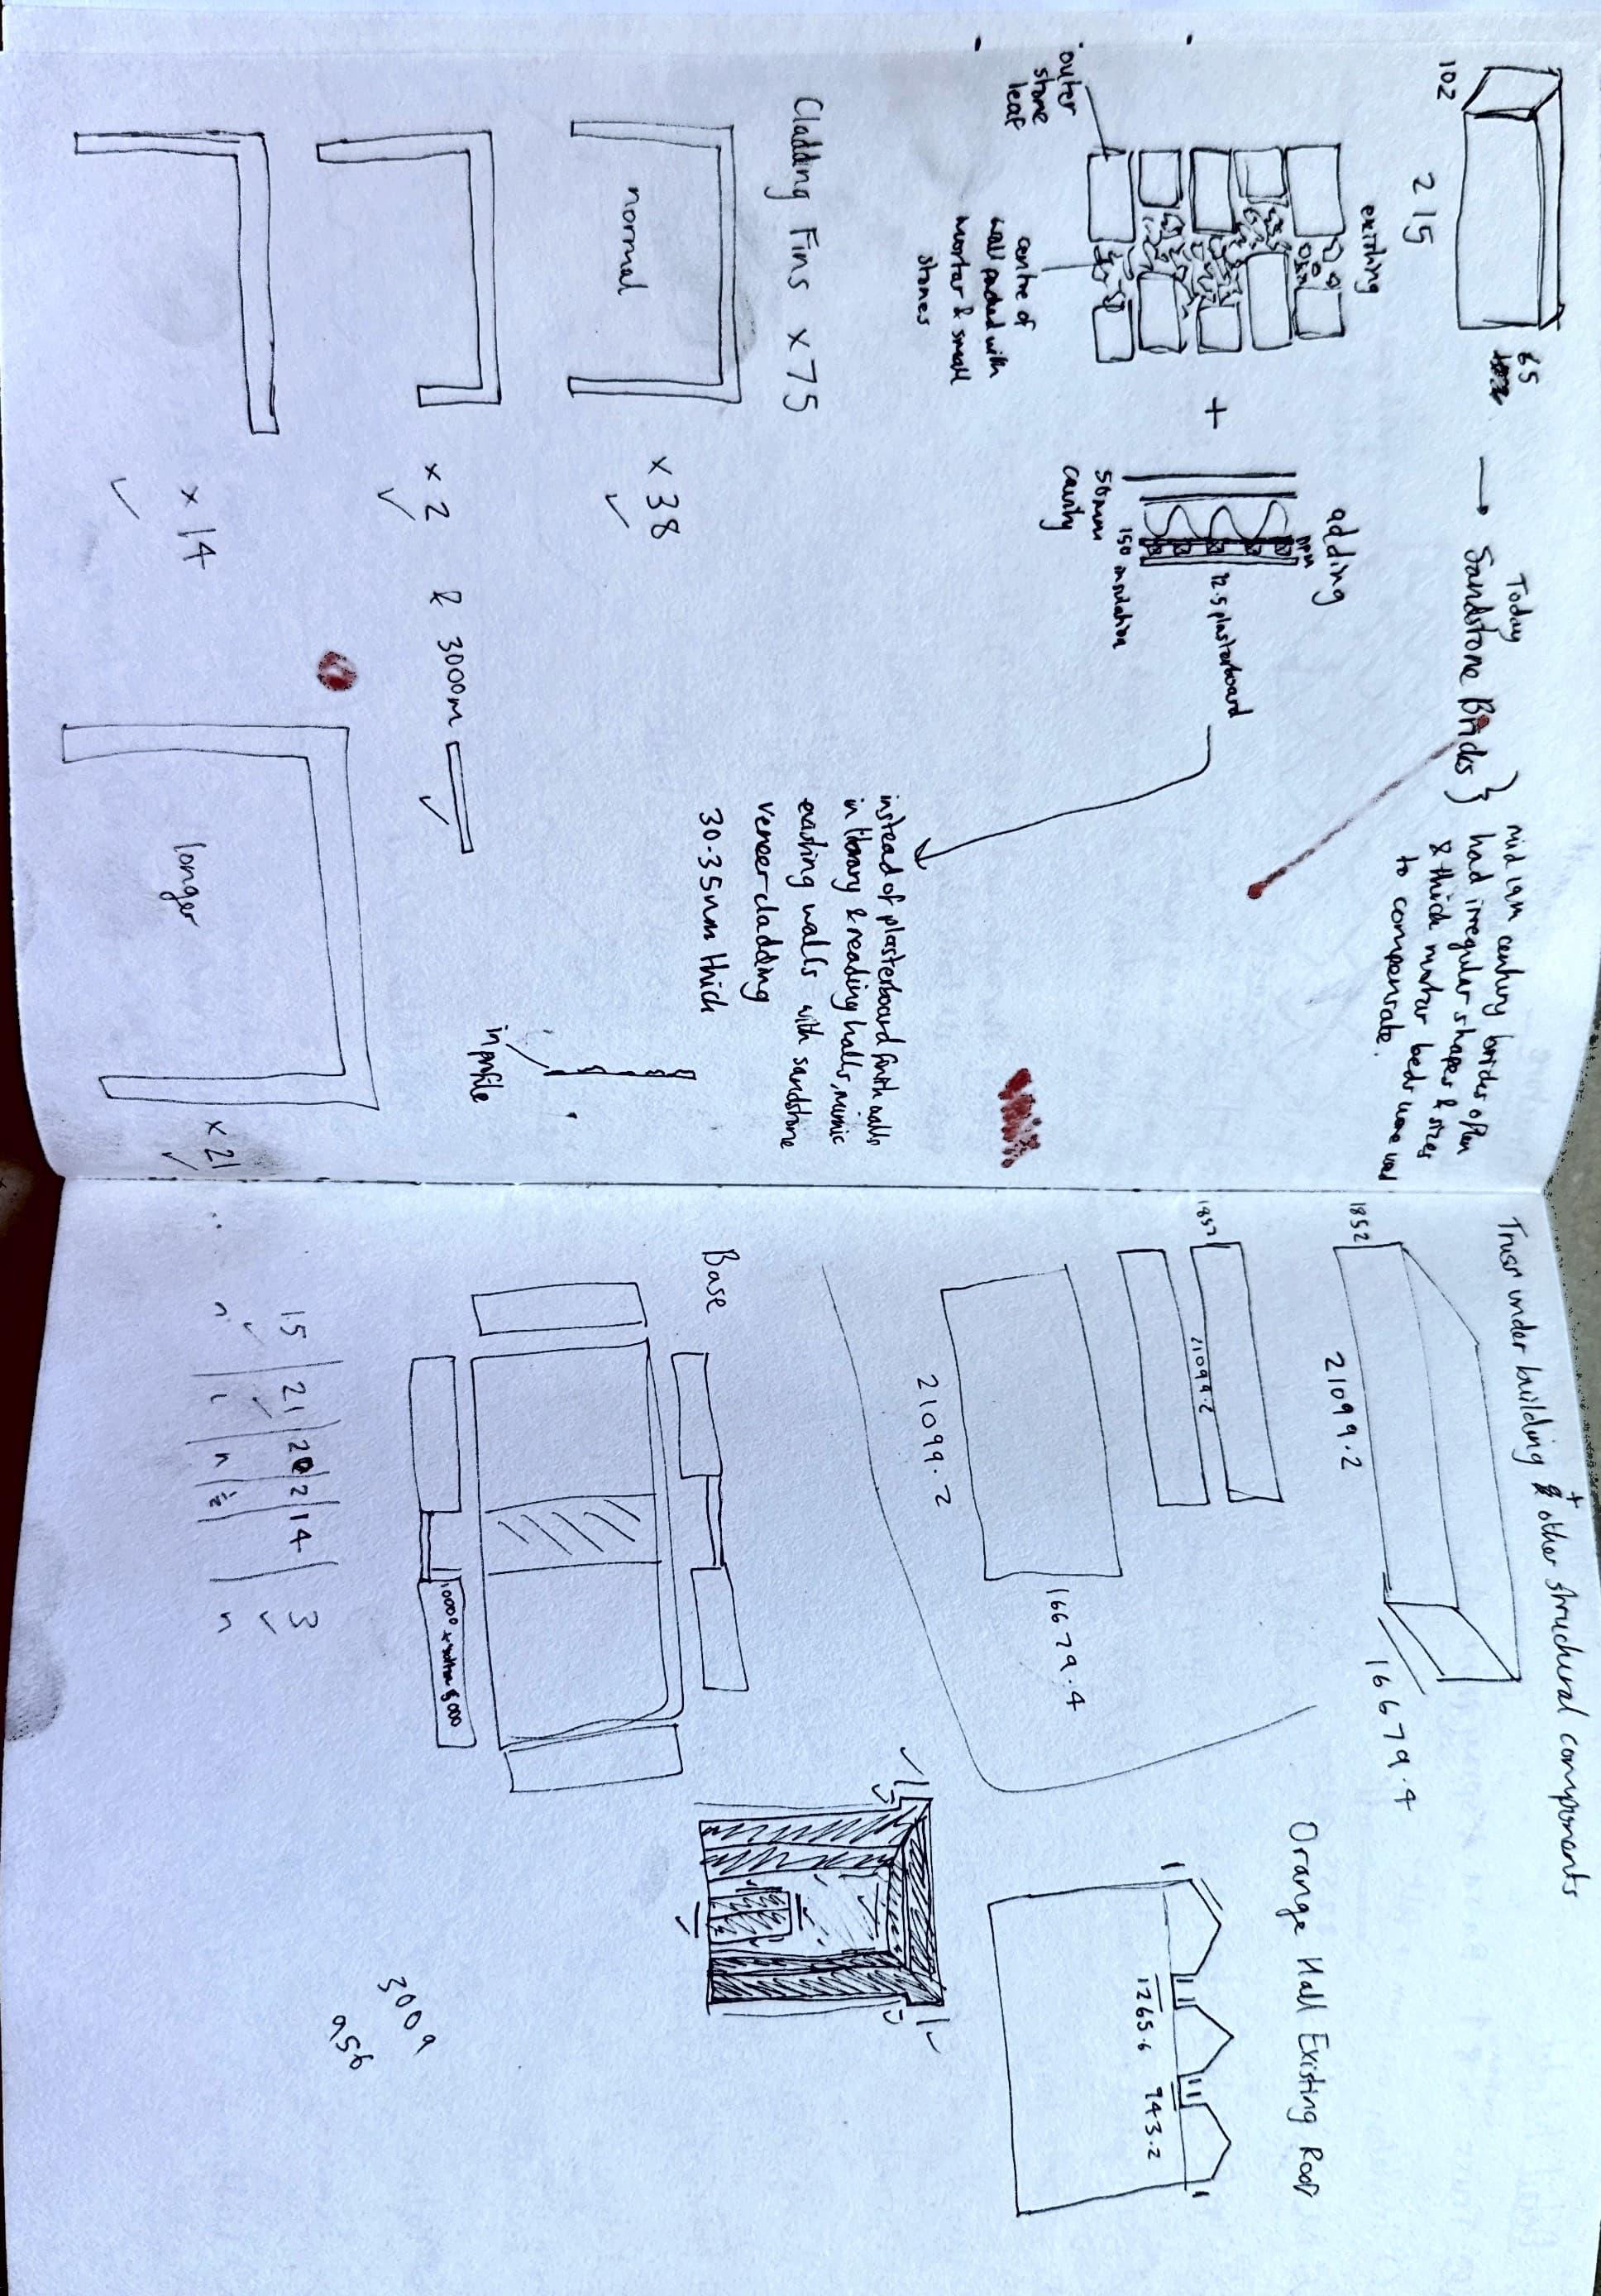 102
215
65
Today
Sandstone Bricks }
mid 19th century bricks often
had irregular shapes & sizes
& thick mortar beds were used
to compensate.
existing
outer
stone
leaf
centre of
wall packed with
mortar & small
stones
+
adding
DPM
12.5 plasterboard
50mm
cavity
150 insulation
instead of plasterboard finish walls
in library & reading halls, mimic
existing walls with sandstone
veneer cladding
30-35mm thick
in profile
Cladding Fins x75
normal
x 38
x 2
& 3000m
x 14
longer
x 21
Truss under building & + other structural components
1852
21099.2
16679.4
1852
21099.2
21099.2
16679.4
Orange Hall Existing Roof
1265.6
743.2
Base
15 | 21 | 20 | 2 | 14 | 3
n | L | n | | n
3009
956